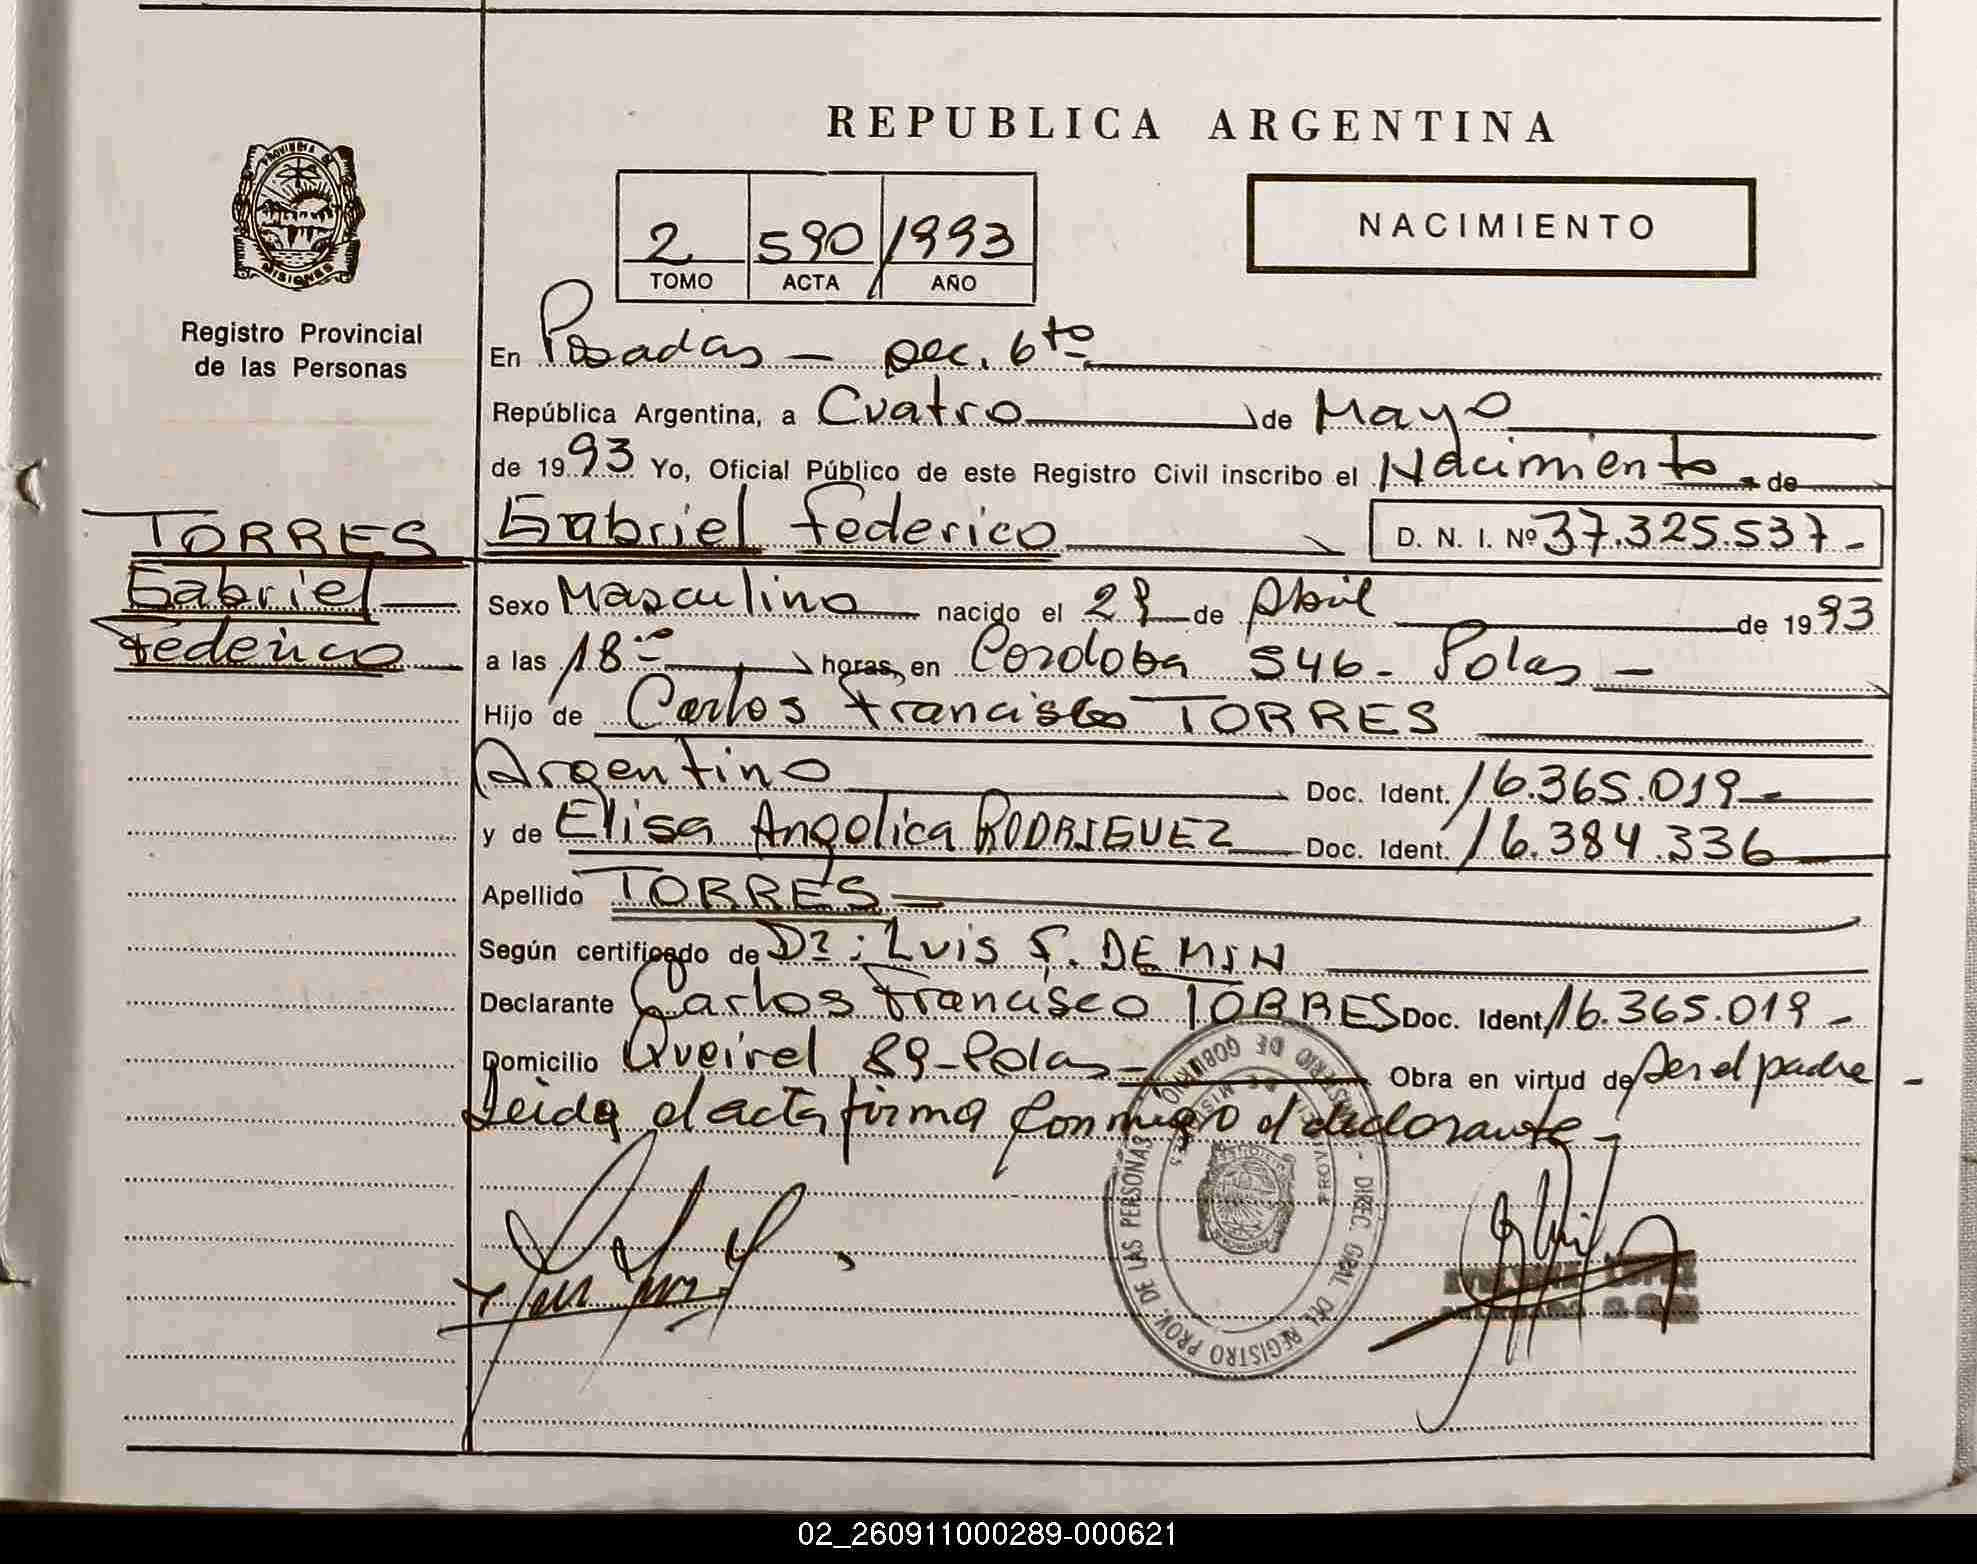 REPUBLICA ARGENTINA
PROVINCIA DE
MISIONES
Registro Provincial
de las Personas
2 590 1993
TOMO ACTA AÑO
NACIMIENTO
En Posadas - sec. 6to
República Argentina, a Cuatro de Mayo
de 1993 Yo, Oficial Público de este Registro Civil inscribo el Nacimiento de
TORRES
Gabriel
Federico
Gabriel Federico D. N. I. Nº 37.325.537-
Sexo Masculino nacido el de Abril de 1993
a las 18 horas, en Cordoba 546- Pdas -
Hijo de Carlos Francisco TORRES
Argentino Doc. Ident. 16.365.019-
y de Elisa Angelica RODRIGUEZ Doc. Ident. 16.384.336
Apellido TORRES
Según certificado de Dr: Luis F. DEMIN
Declarante Carlos Francisco TORRES Doc. Ident. 16.365.019-
Domicilio Queirel 89-Pdas- Obra en virtud de ser el padre -
Leida el acta firma conmigo el declarante-
DIREC. GRAL. DEL REGISTRO PROV. DE LAS PERSONAS
02_260911000289-000621